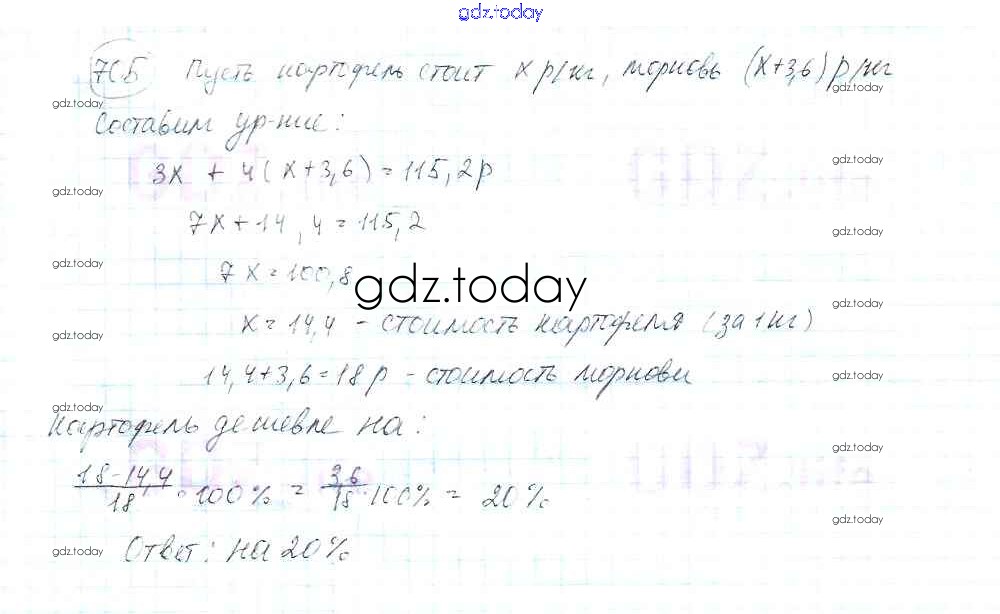 gdz.today
705 Пусть картофель стоит x р/кг, морковь (x+3,6) р/кг
gdz.today
gdz.today
Составим ур-ние:
gdz.today
3x + 4(x+3,6) = 115,2р
gdz.today
7x + 14,4 = 115,2
gdz.today
gdz.today
7x = 100,8
gdz.today
gdz.today
x = 14,4 - стоимость картофеля (за 1 кг)
gdz.today
14,4+3,6=18 р - стоимость моркови
gdz.today
gdz.today
Картофель дешевле на:
gdz.today
18-14,4/18 · 100% = 3,6/18 · 100% = 20%
gdz.today
gdz.today
Ответ: на 20%
gdz.today